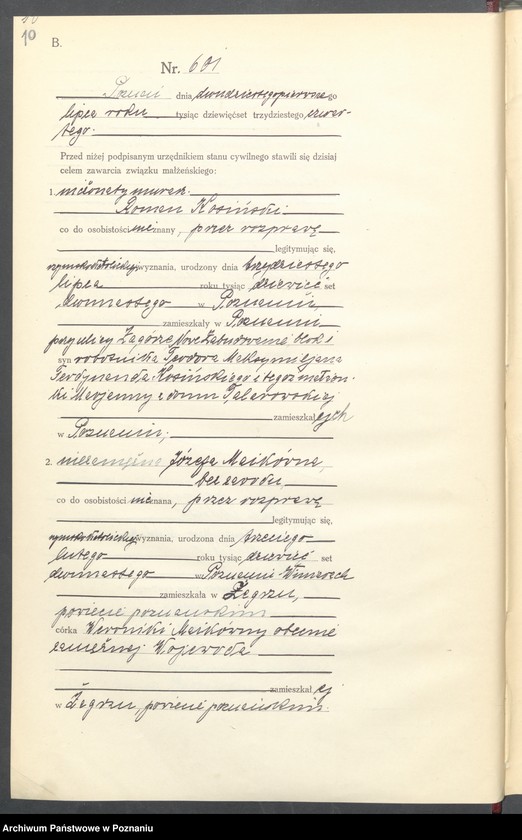 10
B.
Nr. 601
Poznań dnia dwudziestegopierwszego
lipca roku tysiąc dziewięćset trzydziestego czwar-
tego.
Przed niżej podpisanym urzędnikiem stanu cywilnego stawili się dzisiaj
celem zawarcia związku małżeńskiego:
1. nieżonaty murarz
Roman Kosiński
co do osobistości nieznany, przez rozprawę
legitymując się,
rzymskokatolickiego wyznania, urodzony dnia trzydziestego
lipca roku tysiąc dziewięć set
dwunastego w Poznaniu,
zamieszkały w Poznaniu
przy ulicy Zagórze Nowe Zabudowanie blok 1
syn robotnika Teodora Maksymiljana
Ferdynanda Kosińskiego i tegoż małżon-
ki Marjanny z domu
zamieszkałych
w Poznaniu;
2. niezamężna Józefa Maikówna,
bez zawodu,
co do osobistości nieznana, przez rozprawę
legitymując się,
rzymskokatolickiego wyznania, urodzona dnia trzeciego
lutego roku tysiąc dziewięć set
dwunastego w Poznaniu-Winiarach
zamieszkała w Żegrzu,
powiecie poznańskim
córka Weroniki Maikówny obecnie
zamężnej Wojewoda
zamieszkałej
w Żegrzu, powiecie poznańskim.
Archiwum Państwowe w Poznaniu